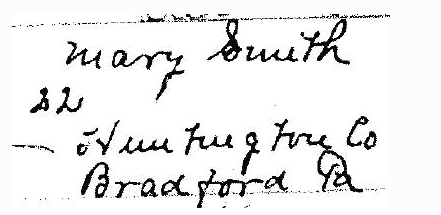 Mary Smith
22
— Huntington Co
Bradford Pa